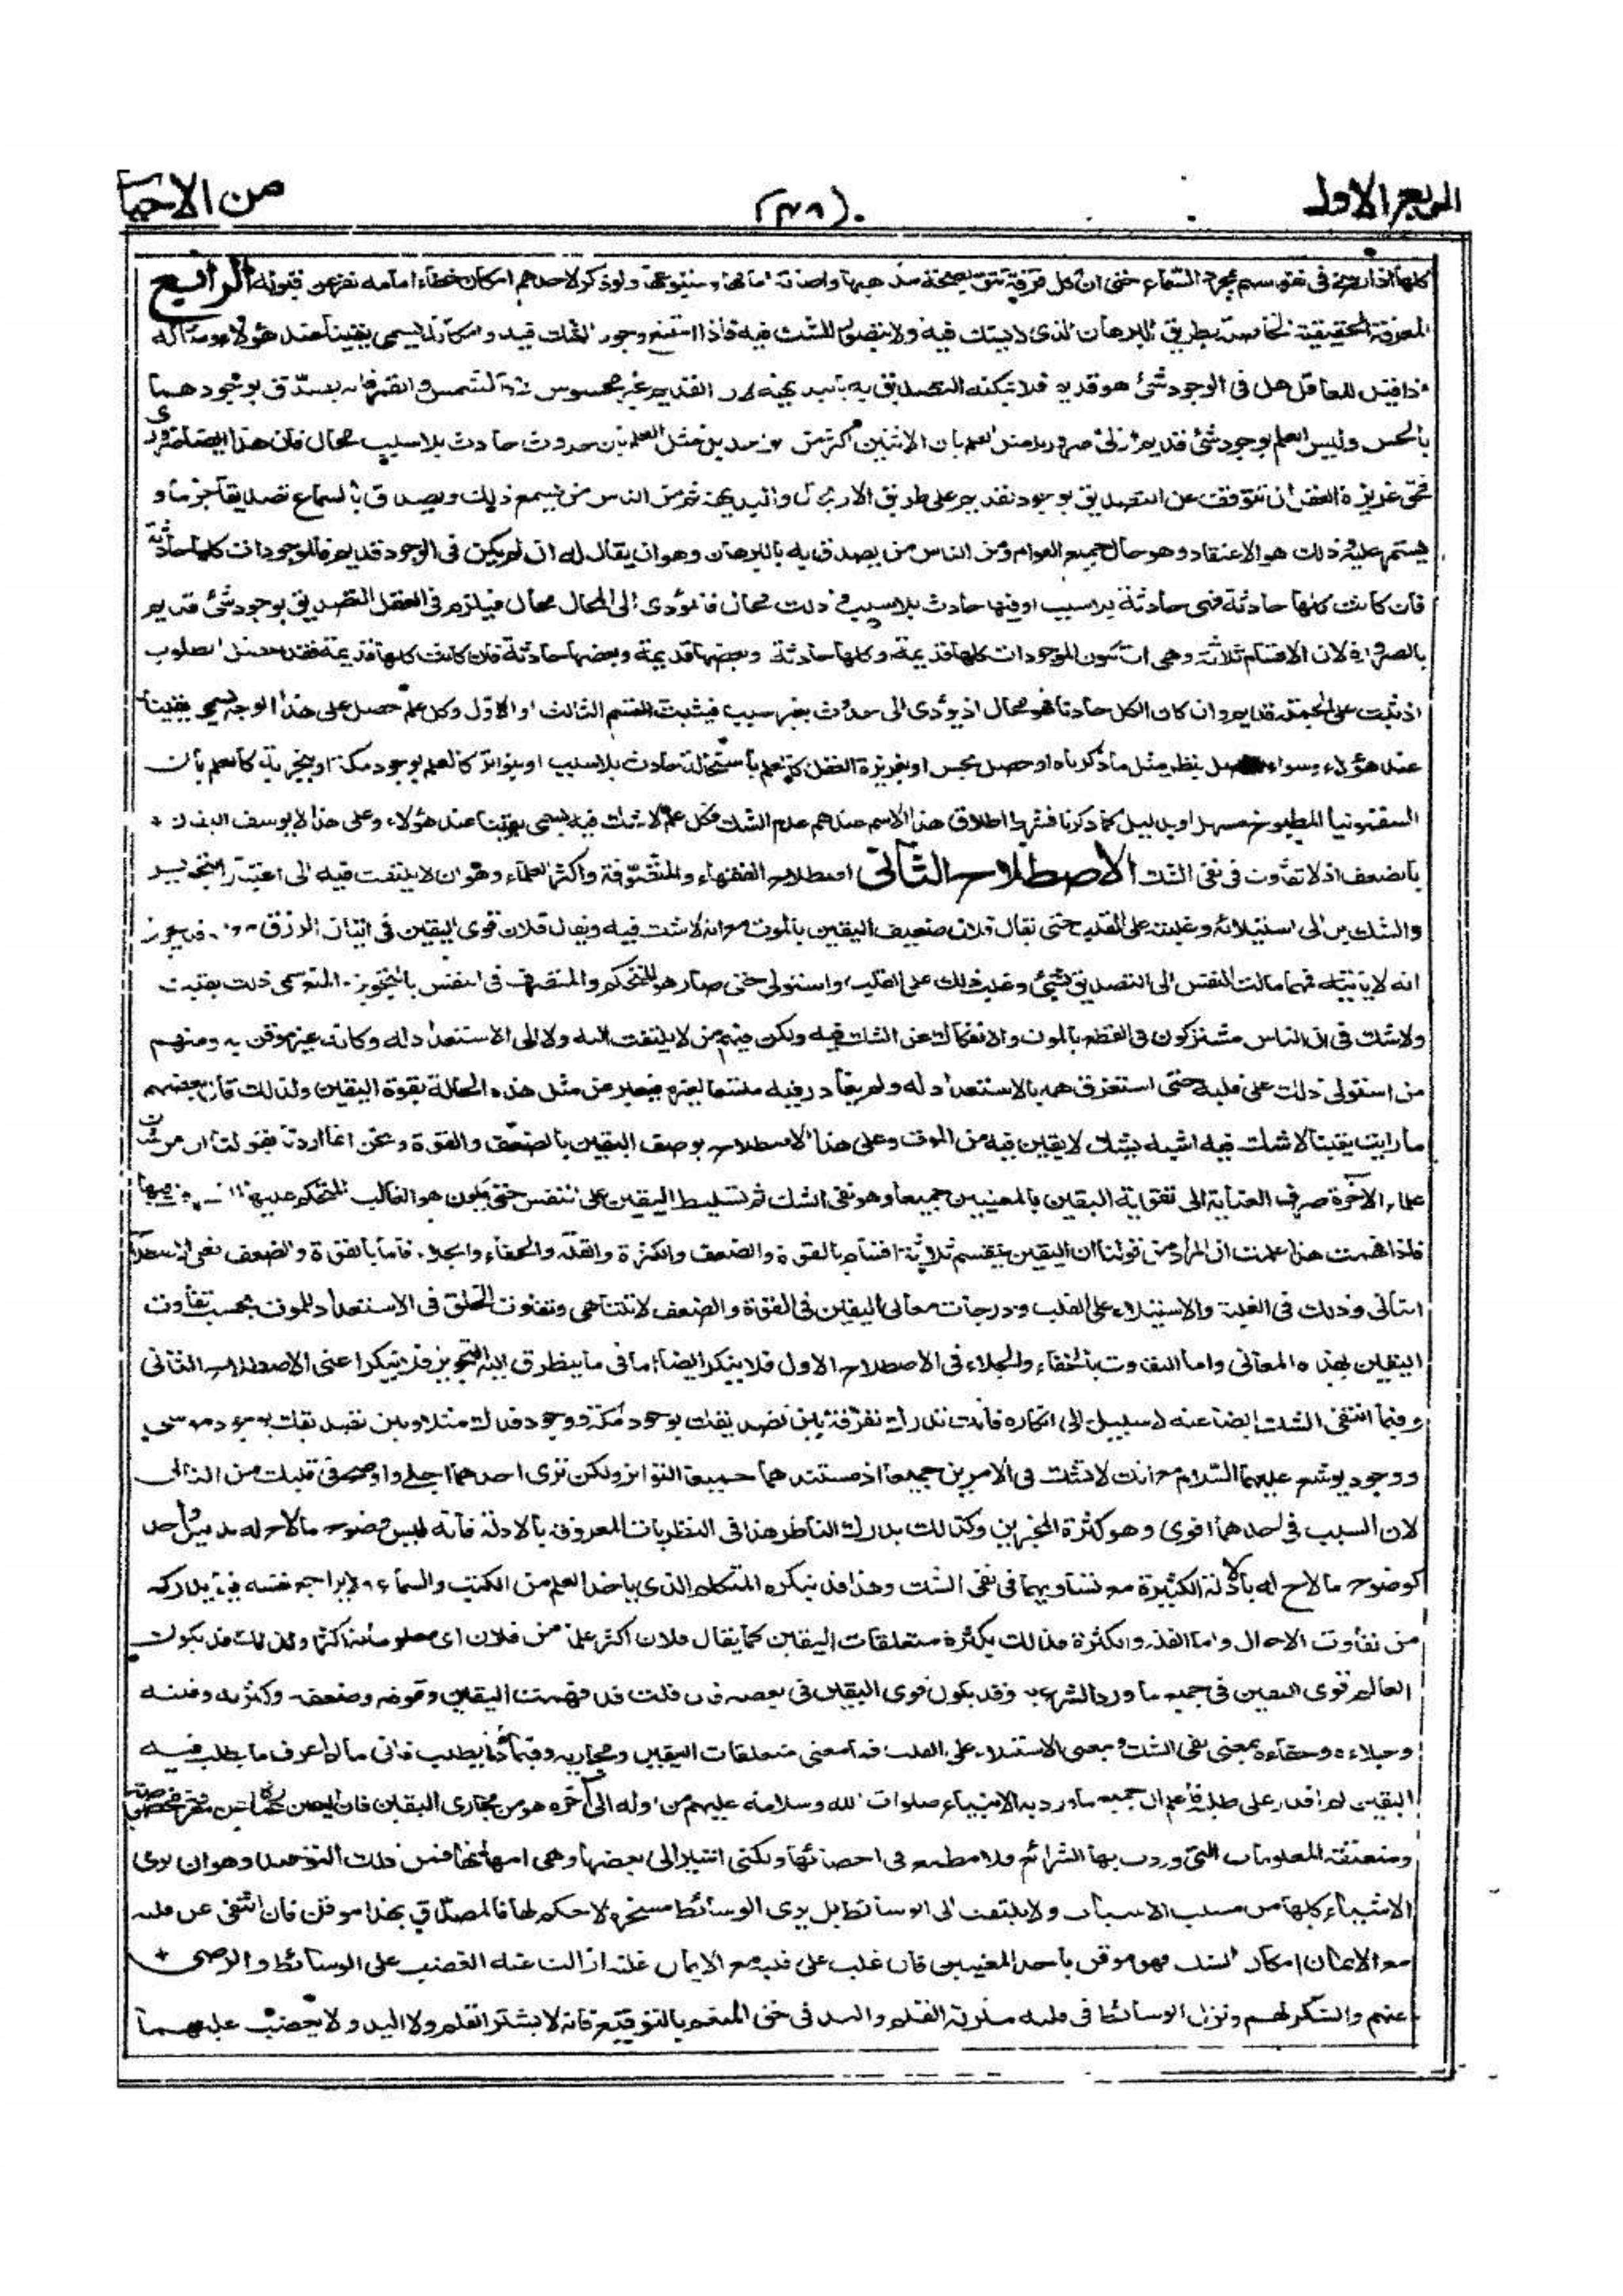 الربع الاول
(٣٨)
من الاحيا
كلها اذا رسخ فى نفوسهم بمجرد السماع حتى ان كل فرقة تثق بصحة مذهبها واصابة امامها ومتبوعها ولو ذكر لاحدهم امكان خطاء امامه نفر عن قبوله الرابع
المعرفة الحقيقية الحاصلة بطريق البرهان الذى لا يشك فيه ولا يتصور الشك فيه فاذا امتنع وجود الشك فيه وامكانه يسمى يقينا عند هؤلاء ومثاله
اذا قيل للعاقل هل فى الوجود شئ هو قديم فلا يمكنه التصديق به بالبديهة لان القديم غير محسوس لا كالشمس والقمر فانه يصدق بوجودهما
بالحس وليس العلم بوجود شئ قديم ازلى ضروريا مثل العلم بان الاثنين اكثر من الواحد بل مثل العلم بان حدوث حادث بلا سبب محال فان هذا ايضا ضرورى
فحق غريزة العقل ان تتوقف عن التصديق بوجود القديم على طريق الارتجال والبديهة ثم من الناس من يسمع ذلك ويصدق بالسماع تصديقا جزما و
يستمر عليه وذلك هو الاعتقاد وهو حال جميع العوام ومن الناس من يصدق به بالبرهان وهو ان يقال له ان لم يكن فى الوجود قديم فالموجودات كلها حادثة
فان كانت كلها حادثة فهى حادثة بلا سبب او فيها حادث بلا سبب وذلك محال فالمؤدى الى المحال محال فيلزم فى العقل التصديق بوجود شئ قديم
بالضرورة لان الاقسام ثلاثة وهى ان تكون الموجودات كلها قديمة وكلها حادثة وبعضها قديمة وبعضها حادثة فان كانت كلها قديمة فقد حصل المطلوب
اذ ثبت على الجملة قديم وان كان الكل حادثا فهو محال اذ يؤدى الى حدوث بغير سبب فيثبت القسم الثالث او الاول وكل علم حصل على هذا الوجه يسمى يقينا
عند هؤلاء وسواء حصل بنظر مثل ما ذكرناه او حصل بحس او بغريزة العقل كالعلم باستحالة حادث بلا سبب او بتواتر كالعلم بوجود مكة او بتجربة كالعلم بان
السقمونيا المطبوخ مسهل او بدليل كما ذكرنا فشرط اطلاق هذا الاسم عندهم عدم الشك فكل علم لا شك فيه يسمى يقينا عند هؤلاء وعلى هذا لا يوصف اليقين
بالضعف اذ لا تفاوت فى نفى الشك الاصطلاح الثانى اصطلاح الفقهاء والمتصوفة واكثر العلماء وهو ان لا يلتفت فيه الى اعتبار التجويز
والشك بل الى استيلائه وغلبته على القلب حتى يقال فلان ضعيف اليقين بالموت مع انه لا شك فيه ويقال فلان قوى اليقين فى اتيان الرزق مع انه قد يجوز
انه لا ياتيه فمهما مالت النفس الى التصديق بشئ وغلب ذلك على القلب واستولى حتى صار هو المتحكم والمتصرف فى النفس بالتجويز والمنع سمى ذلك يقينا
ولا شك فى ان الناس مشتركون فى القطع بالموت والانفكاك عن الشك فيه ولكن فيهم من لا يلتفت اليه ولا الى الاستعداد له وكانه غير موقن به ومنهم
من استولى ذلك على قلبه حتى استغرق همه بالاستعداد له ولم يغادر فيه متسعا لغيره فيعبر عن مثل هذه الحالة بقوة اليقين ولذلك قال بعضهم
ما رايت يقينا لا شك فيه اشبه بشك لا يقين فيه من الموت وعلى هذا الاصطلاح يوصف اليقين بالضعف والقوة ونحن انما اردنا بقولنا ان من شان
علماء الاخرة صرف العناية الى تقوية اليقين بالمعنيين جميعا وهو نفى الشك ثم تسليط اليقين على النفس حتى يكون هو الغالب المتحكم عليها
فاذا فهمت هذا علمت ان المراد من قولنا ان اليقين ينقسم ثلاثة اقسام بالقوة والضعف والكثرة والقلة والخفاء والجلاء فاما بالقوة والضعف فعلى الاصطلاح
الثانى وذلك فى الغلبة والاستيلاء على القلب ودرجات معانى اليقين فى القوة والضعف لا تتناهى وتفاوت الخلق فى الاستعداد للموت بحسب تفاوت
اليقين بهذه المعانى واما التفاوت بالخفاء والجلاء فى الاصطلاح الاول فلا ينكر ايضا اما فى ما يتطرق اليه التجويز فلا ينكر اعنى الاصطلاح الثانى
وفيما انتفى الشك ايضا عنه لا سبيل الى انكاره فانك تدرك تفرقة بين تصديقك بوجود مكة ووجود فدك مثلا وبين تصديقك بوجود موسى
ووجود يوشع عليهما السلام مع انك لا تشك فى الامرين جميعا اذ مستندهما جميعا التواتر ولكن ترى احدهما اجلى واوضح فى قلبك من الثانى
لان السبب فى احدهما اقوى وهو كثرة المخبرين وكذلك يدرك الناظر هذا فى النظريات المعروفة بالادلة فانه ليس وضوح ما لاح له بدليل واحد
كوضوح ما لاح له بالادلة الكثيرة مع تساويهما فى نفى الشك وهذا قد ينكره المتكلم الذى ياخذ العلم من الكتب والسماع ولا يراجع نفسه فيما يدركه
من تفاوت الاحوال واما القلة والكثرة فذلك بكثرة متعلقات اليقين كما يقال فلان اكثر علما من فلان اى معلوماته اكثر ولذلك قد يكون
العالم قوى اليقين فى جميع ما ورد الشرع به وقد يكون قوى اليقين فى بعضه فان قلت قد فهمت اليقين وقوته وضعفه وكثرته وقلته
وجلاءه وخفاءه بمعنى نفى الشك وبمعنى الاستيلاء على القلب فما معنى متعلقات اليقين ومجاريه وفيما ذا يطلب فانى ما لم اعرف ما يطلب فيه
اليقين لم اقدر على طلبه فاعلم ان جميع ما ورد به الانبياء صلوات الله وسلامه عليهم من اوله الى اخره هو من مجارى اليقين فان اليقين عبارة عن معرفة مخصوصة
ومتعلقه المعلومات التى وردت بها الشرائع فلا مطمع فى احصائها ولكنى اشير الى بعضها وهى امهاتها فمن ذلك التوحيد وهو ان يرى
الاشياء كلها من مسبب الاسباب ولا يلتفت الى الوسائط بل يرى الوسائط مسخرة لا حكم لها فالمصدق بهذا موقن فان انتفى عن قلبه
مع الايمان امكان الشك فهو موقن باحد المعنيين فان غلب على قلبه مع الايمان غلبة ازالت عنه الغضب على الوسائط والرضى
عنهم والشكر لهم ونزل الوسائط فى قلبه منزلة القلم واليد فى حق المنعم بالتوقيع فانه لا يشكر القلم ولا اليد ولا يغضب عليهما